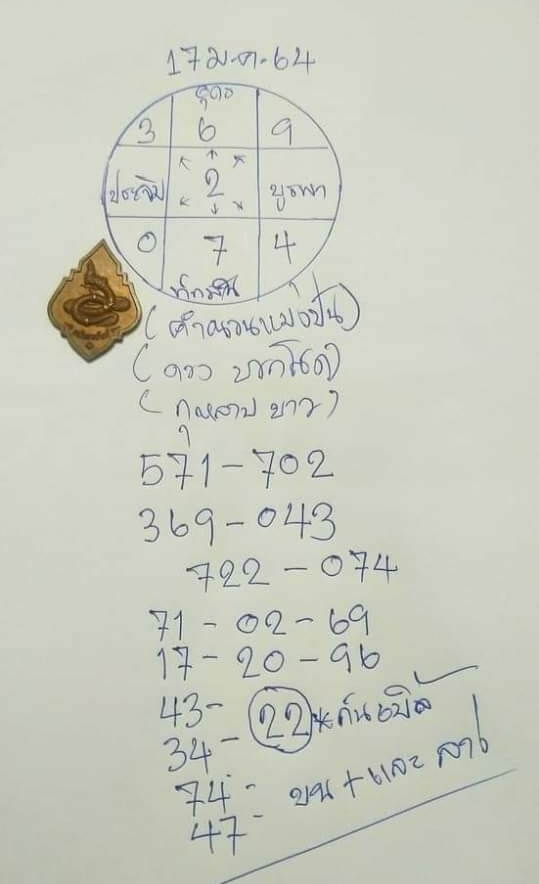 17 ม.ค. 64
อุดร
3 6 9
ประจิม 2 บูรพา
0 7 4
ทักษิณ
(คำนวนแม่งปั่น)
(ดาว บาทโต)
(กุหลาบ ขาว)
571-702
369-043
722-074
71-02-69
17-20-96
43-
34-
22
74-
47-
บน + และ ล่าง